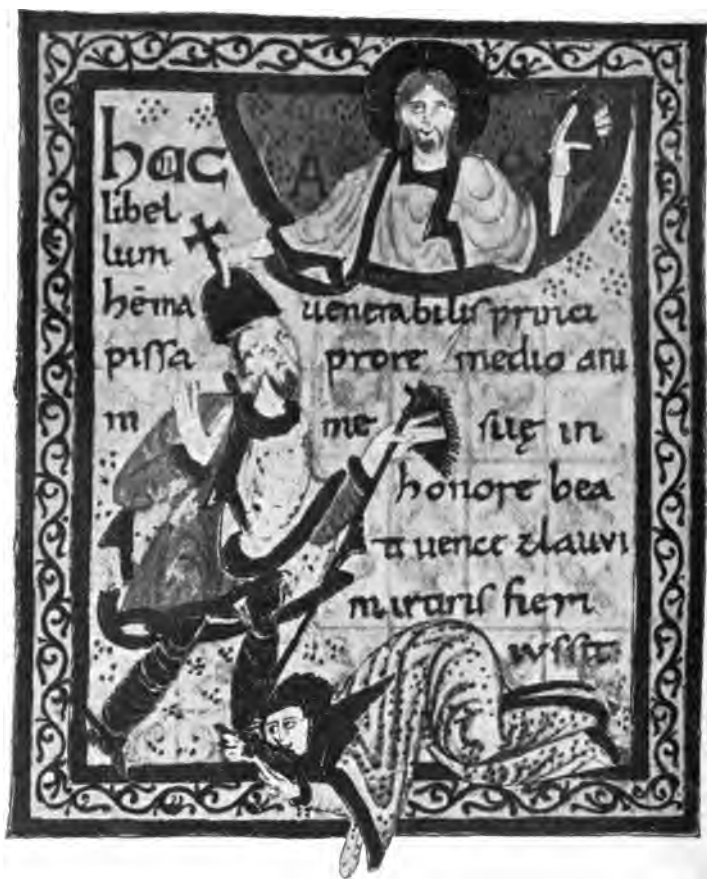 A
hunc
libel
lum
hēma uenerabilis princi
pissa prore medio ani
m me suę in
honore bea
ti uencezlauui
martiris fieri
iussit